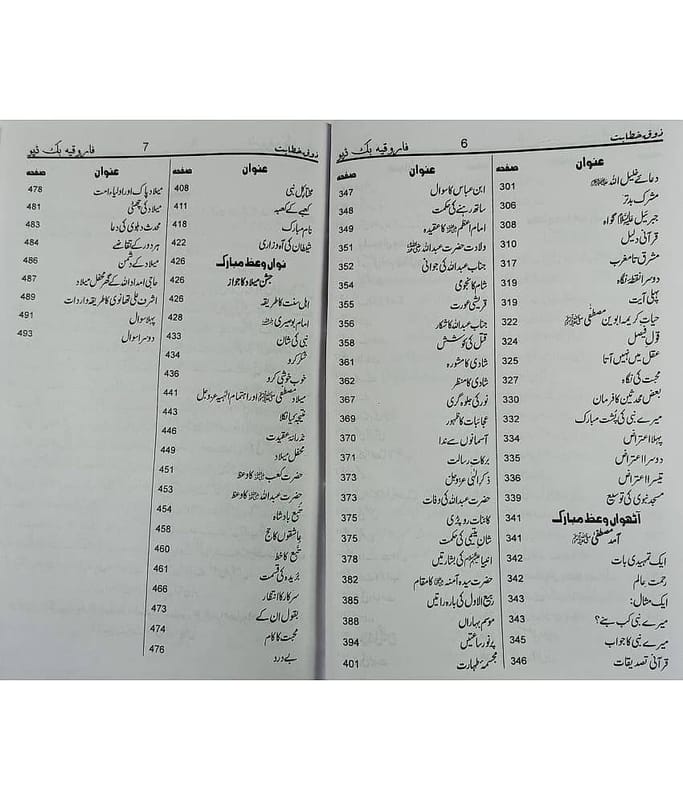 ذوق خطابت 6 فاروقیہ بک ڈپو
عنوان صفحہ
دعائے خلیل اللہ ﷺ 301
مشرک بدتر 306
جبریل علیہ السلام گواہ 308
قرآنی دلیل 310
مشرق تا مغرب 317
دوسرا نقطہ نگاہ 319
پہلی آیت 319
حیات کریمہ ابوین مصطفیٰ ﷺ 322
قول فیصل 324
عقل میں نہیں آتا 325
محبت کی نگاہ 327
بعض محدثین کا فرمان 330
میرے نبی کی پشت مبارک 332
پہلا اعتراض 334
دوسرا اعتراض 335
تیسرا اعتراض 336
مسجد نبوی کی توسیع 339
آٹھواں وعظ مبارک 341
آمد مصطفیٰ ﷺ 341
ایک تمہیدی بات 342
رحمت عالم 342
ایک مثال: 343
میرے نبی کب بنے؟ 343
میرے نبی کا جواب 345
قرآنی تصدیقات 346
ابن عباس کا سوال 347
ساتھ رہنے کی حکمت 348
امام اعظم کا عقیدہ 349
ولادت حضرت عبداللہ 351
جناب عبداللہ کی جوانی 352
شام کا نجومی 354
قریشی عورت 355
جناب عبداللہ کا شکار 356
قتل کی کوشش 358
شادی کا مشورہ 361
شادی کا منظر 362
نور کی جلوہ گری 367
عجائبات کا ظہور 369
آسمانوں سے ندا 370
برکات رسالت 371
ذکر الٰہی عزوجل 373
حضرت عبداللہ کی وفات 373
کائنات رو پڑی 375
شان یتیمی کی حکمت 375
انبیا کی بشارتیں 378
حضرت سیدہ آمنہ کا مقام 382
ربیع الاول کی بارہ راتیں 385
موسم بہاراں 388
پرنور ساعتیں 394
مجسمہ طہارت 401
ذوق خطابت 7 فاروقیہ بک ڈپو
عنوان صفحہ عنوان صفحہ
مختار کل نبی 408
کعبے کے کعبہ 411
نام مبارک 418
شیطان کی آہ وزاری 422
نواں وعظ مبارک 426
جشن میلاد کا جواز 426
اہل سنت کا طریقہ 426
امام بوصیری 428
نبی کی شان 433
شکر کرو 434
خوب خوشی کرو 436
میلاد مصطفیٰ ﷺ اور اہتمام الٰہیہ عزوجل 441
نتیجہ کیا نکلا 443
نذرانہ عقیدت 446
محفل میلاد 449
حضرت کعب کا وعظ 451
حضرت عبداللہ کا وعظ 453
تبع بادشاہ 454
عاشقوں کا حج 458
تبع کا خط 460
بریدہ کی قسمت 461
سرکار کا انتظار 466
بقول ان کے 473
محبت کا کام 474
بے درد 476
میلاد پاک اور اولیاء امت 478
میلاد کی چھٹی 481
محدث دہلوی کی دعا 483
ہر دور کے تقاضے 484
میلاد کے دشمن 486
حاجی امداد اللہ کے گھر محفل میلاد 487
اشرف علی تھانوی کا طریقہ واردات 489
پہلا سوال 491
دوسرا سوال 493